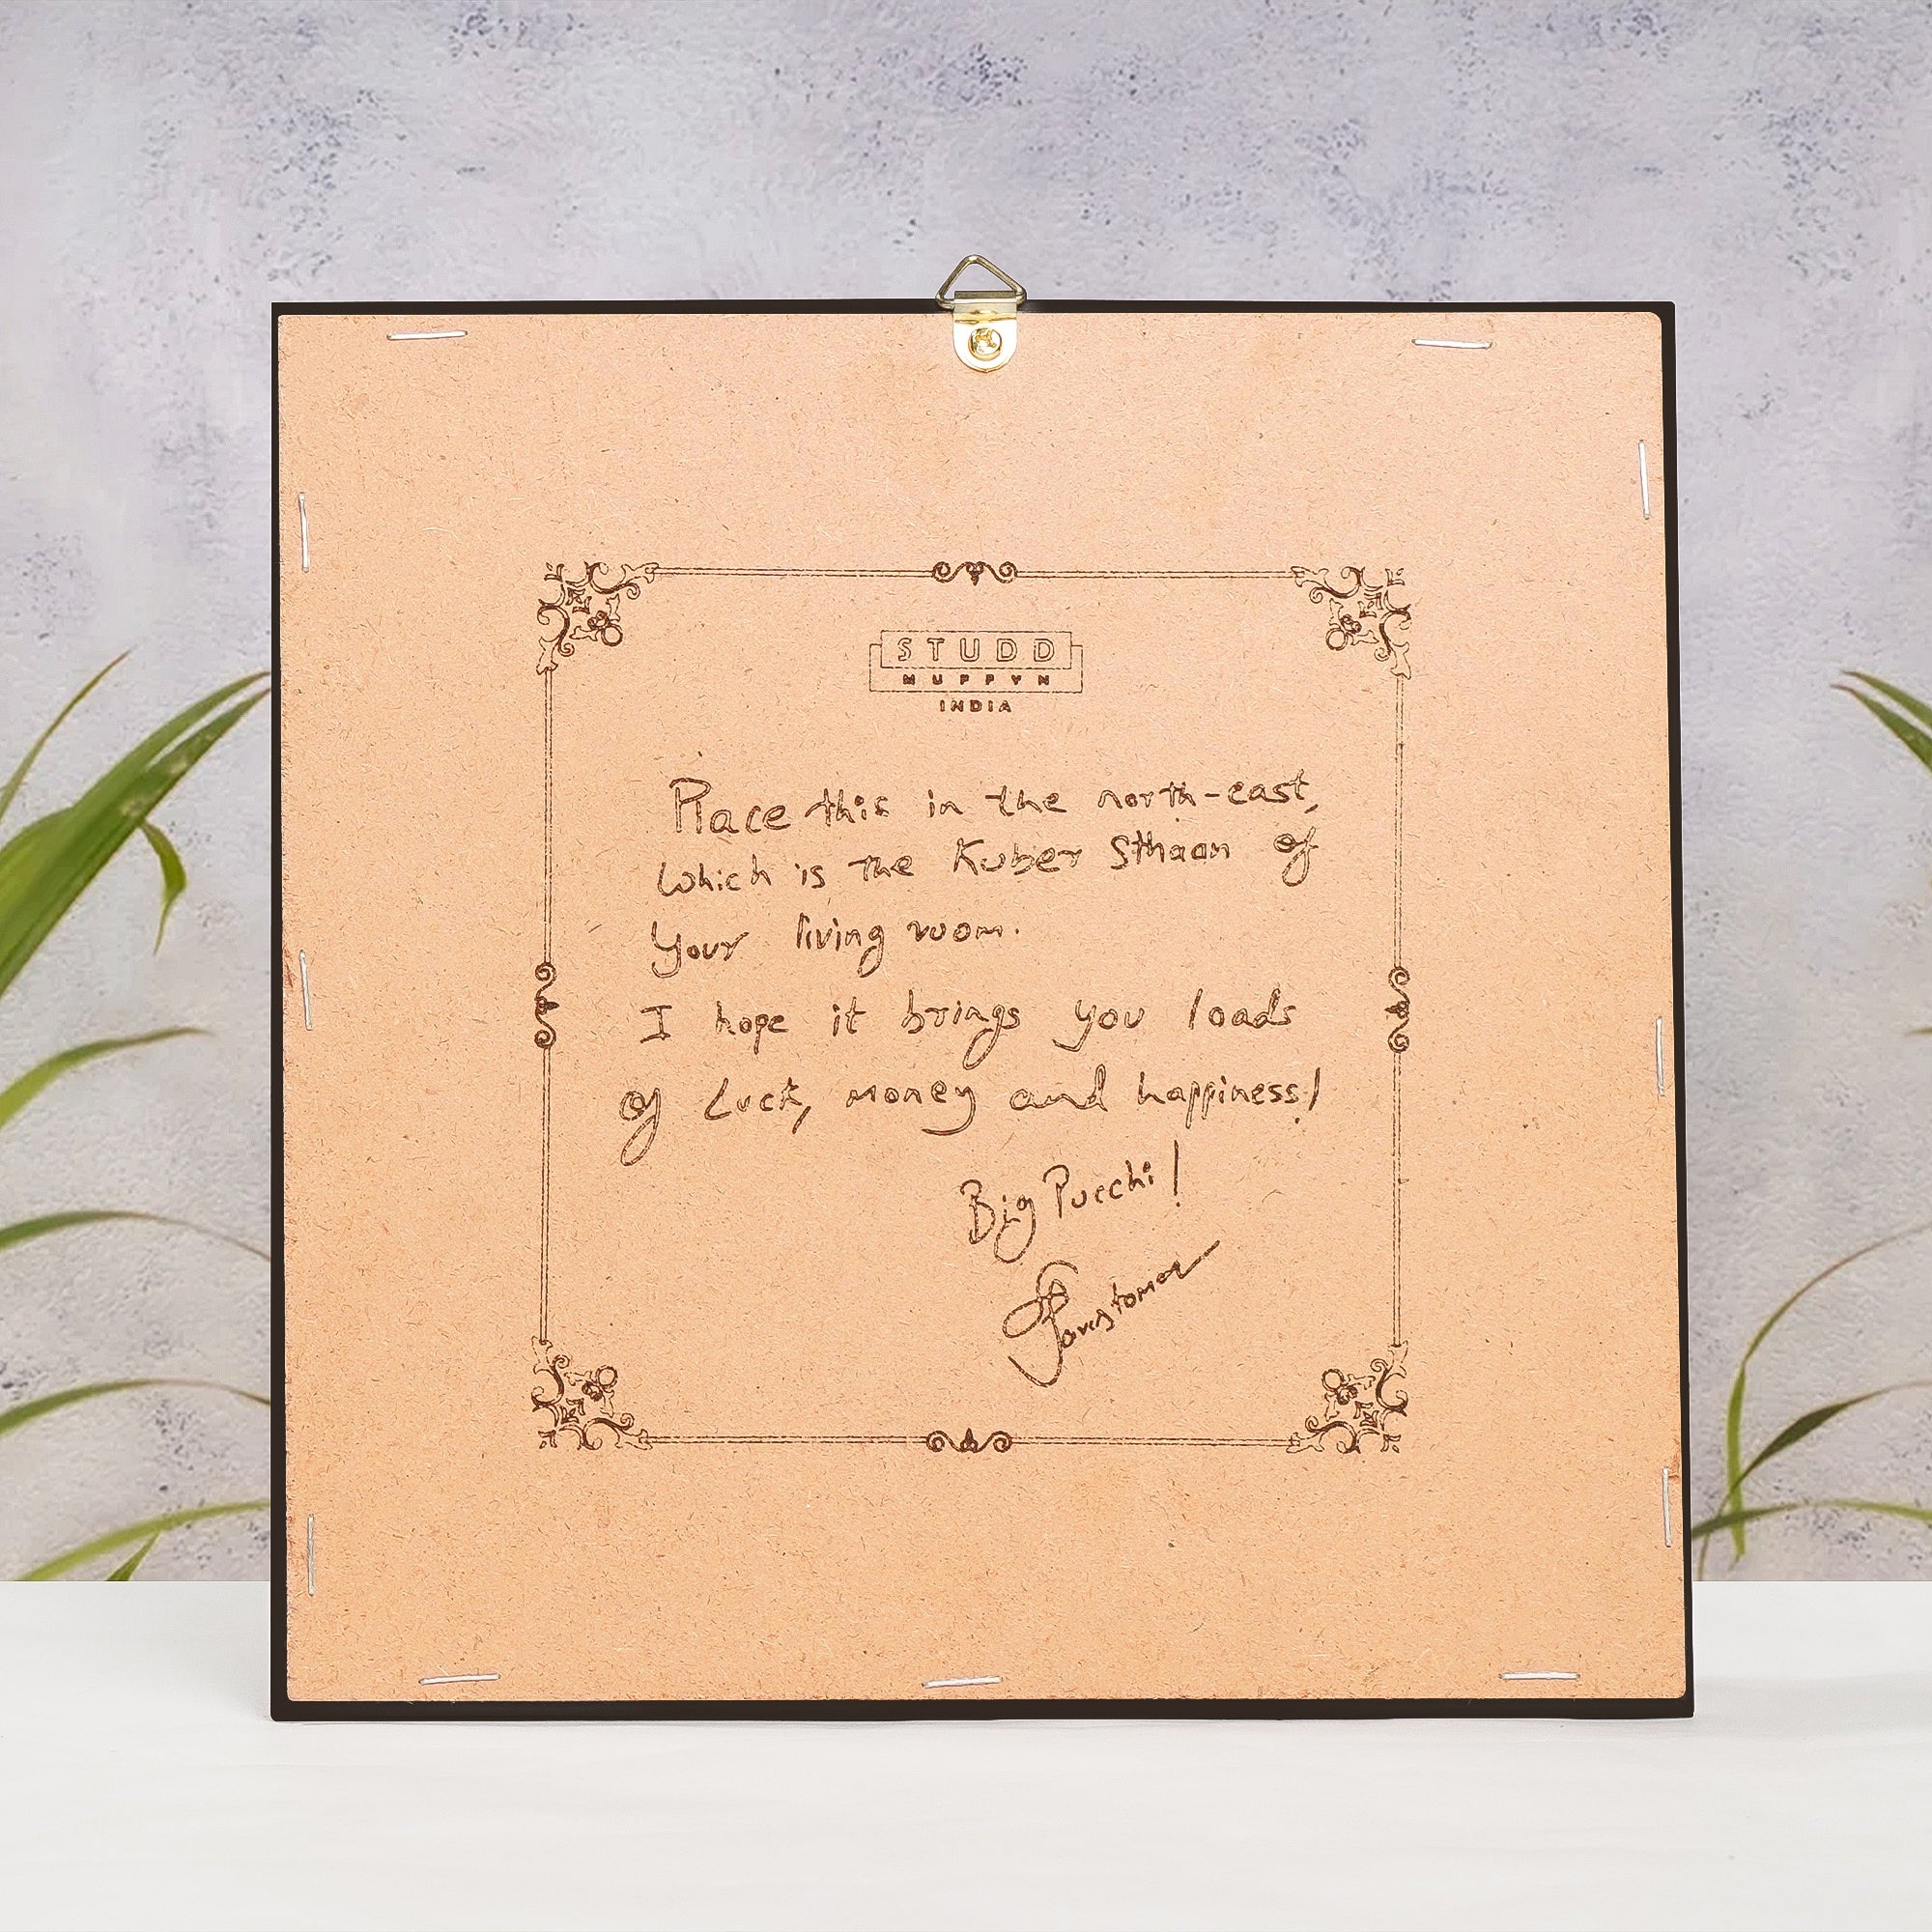 STUDD
MUFFYN
INDIA
Place this in the north-east,
which is the Kuber Sthaan of
Your living room.
I hope it brings you loads
of Luck, money and happiness!
Big Pucchi!